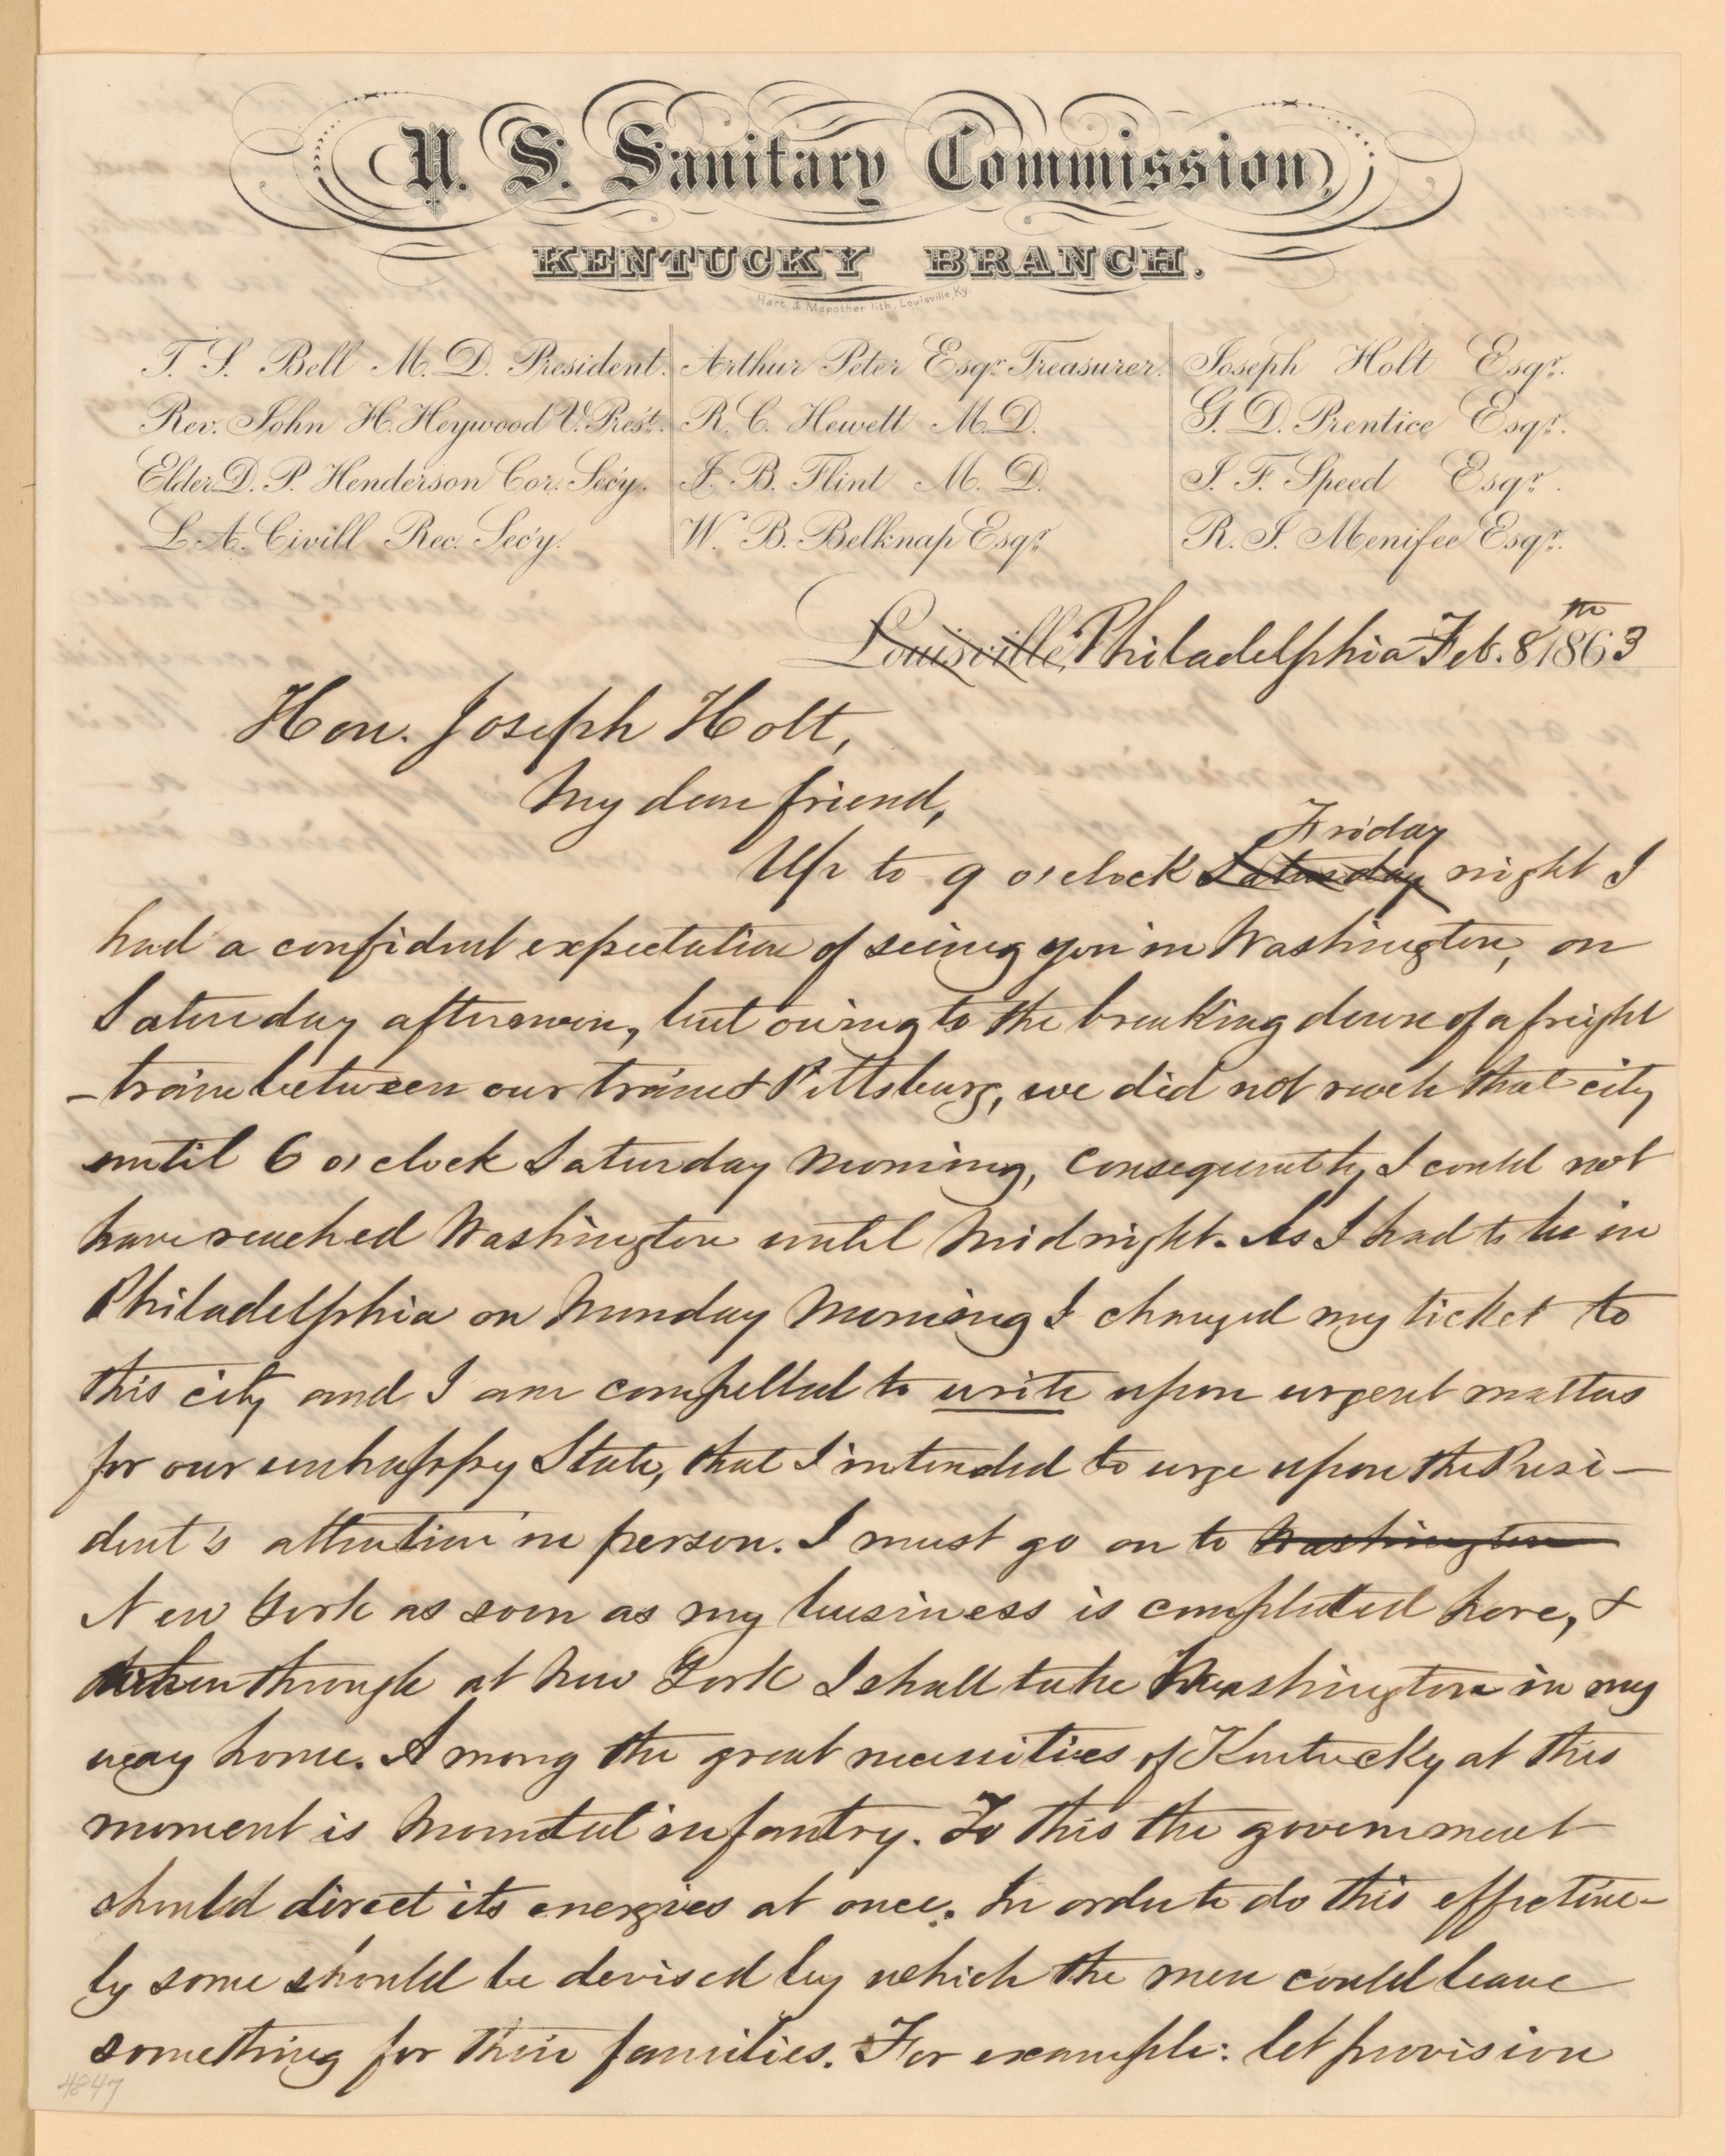 U. S. Sanitary Commission,
KENTUCKY BRANCH.
Hart & Mapother lith, Louisville, Ky.
T. S. Bell M. D. President.
Rev. John H. Heywood V. Pres't.
Elder D. P. Henderson Cor. Sec'y.
L. A. Civill Rec. Sec'y.
Arthur Peter Esqr. Treasurer.
R. C. Hewett M. D.
J. B. Flint M. D.
W. B. Belknap Esqr.
Joseph Holt Esqr.
G. D. Prentice Esqr.
J. F. Speed Esqr.
R. J. Menifee Esqr.
Louisville, Philadelphia Feb. 8th 1863
Hon. Joseph Holt,
My dear friend,
Friday
Up to 9 o'clock Saturday night I
had a confident expectation of seeing you in Washington, on
Saturday afternoon, but owing to the breaking down of a freight
-train between our train & Pittsburg, we did not reach that city
until 6 o'clock Saturday morning, consequently I could not
have reached Washington until Midnight. As I had to be in
Philadelphia on Monday morning I changed my ticket to
this city and I am compelled to write upon urgent matters
for our unhappy State, that I intended to urge upon the Presi-
dent's attention in person. I must go on to Washington
New York as soon as my business is completed here, &
when through at New York I shall take Washington in my
way home. Among the great necessities of Kentucky at this
moment is mounted infantry. To this the government
should direct its energies at once. In order to do this effective-
ly some should be devised by which the men could leave
something for their families. For example: let provision
4847